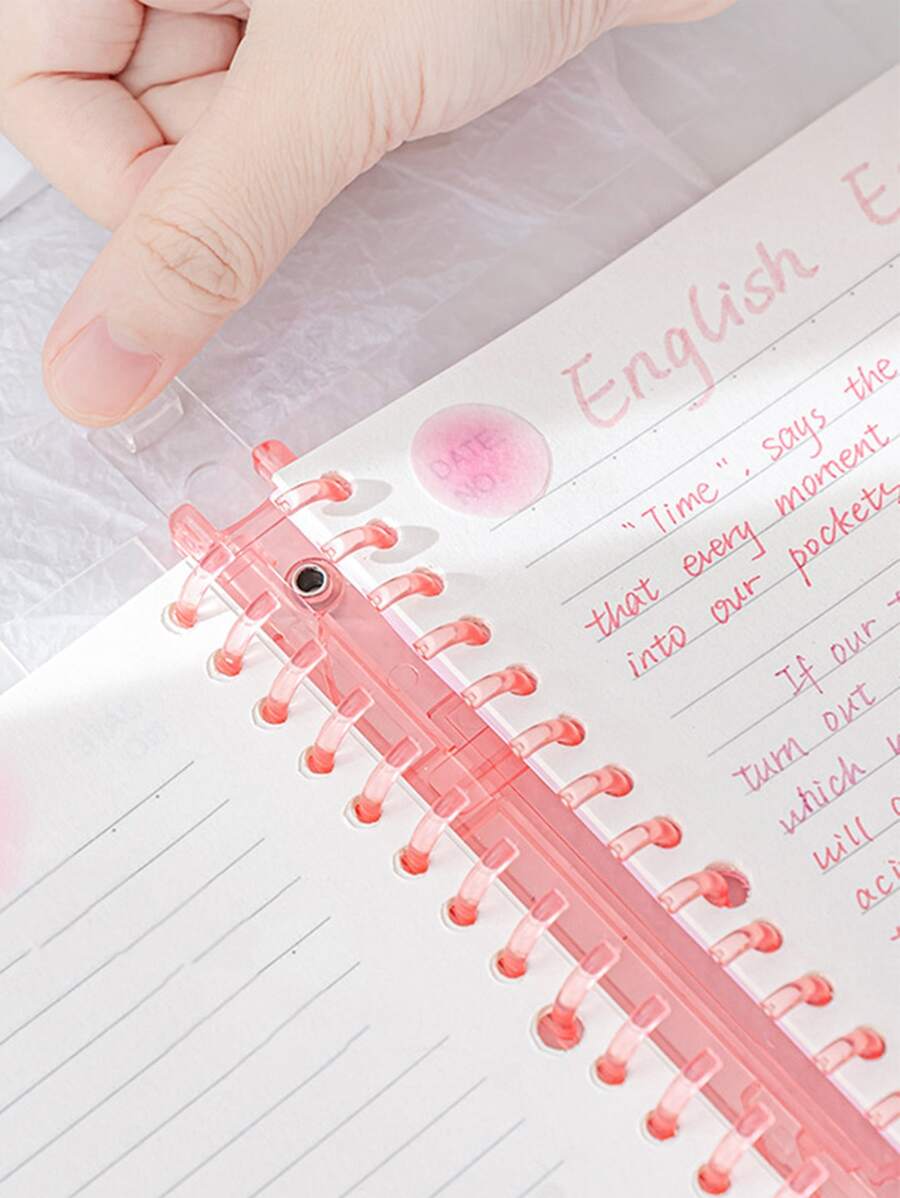 English
DATE:
NO:
"Time", says the
that every moment
into our pockets
If our
turn out
which
will